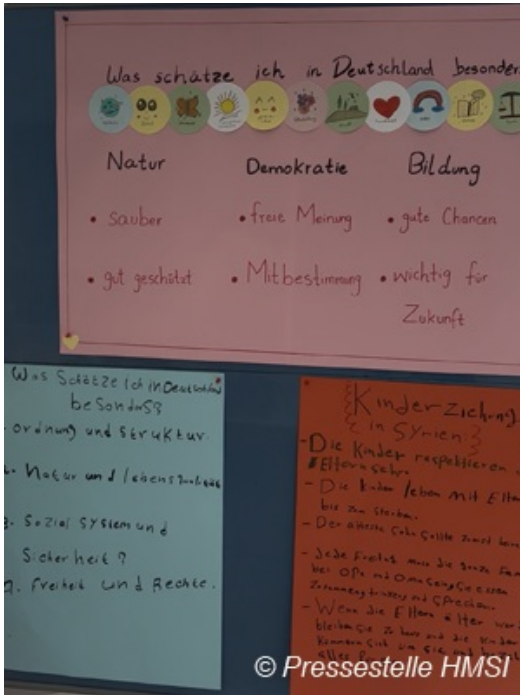 Was schätze ich in Deutschland besonders
Natur
• sauber
• gut geschützt
Demokratie
• freie Meinung
• Mitbestimmung
Bildung
• gute Chancen
• wichtig für
Zukunft
Was Schätze ich in Deutschland
besonders?
ordnung und struktur.
Natur und lebens
3. Sozial System und
Sicherheit?
Freiheit und Rechte.
Kinderziehung
in Syrien
- Die Kinder respektieren
Eltern sehr
- Die Kinder leben mit Elter
bis zum
- Der älteste Sohn sollte
- Jede Freitag muss die ganze Fam
bei Opa und Oma
Zusammen
- Wenn die Eltern älter
bleiben Sie zu haus und die Kinder
kümmern sich um sie und
alles
© Pressestelle HMSI